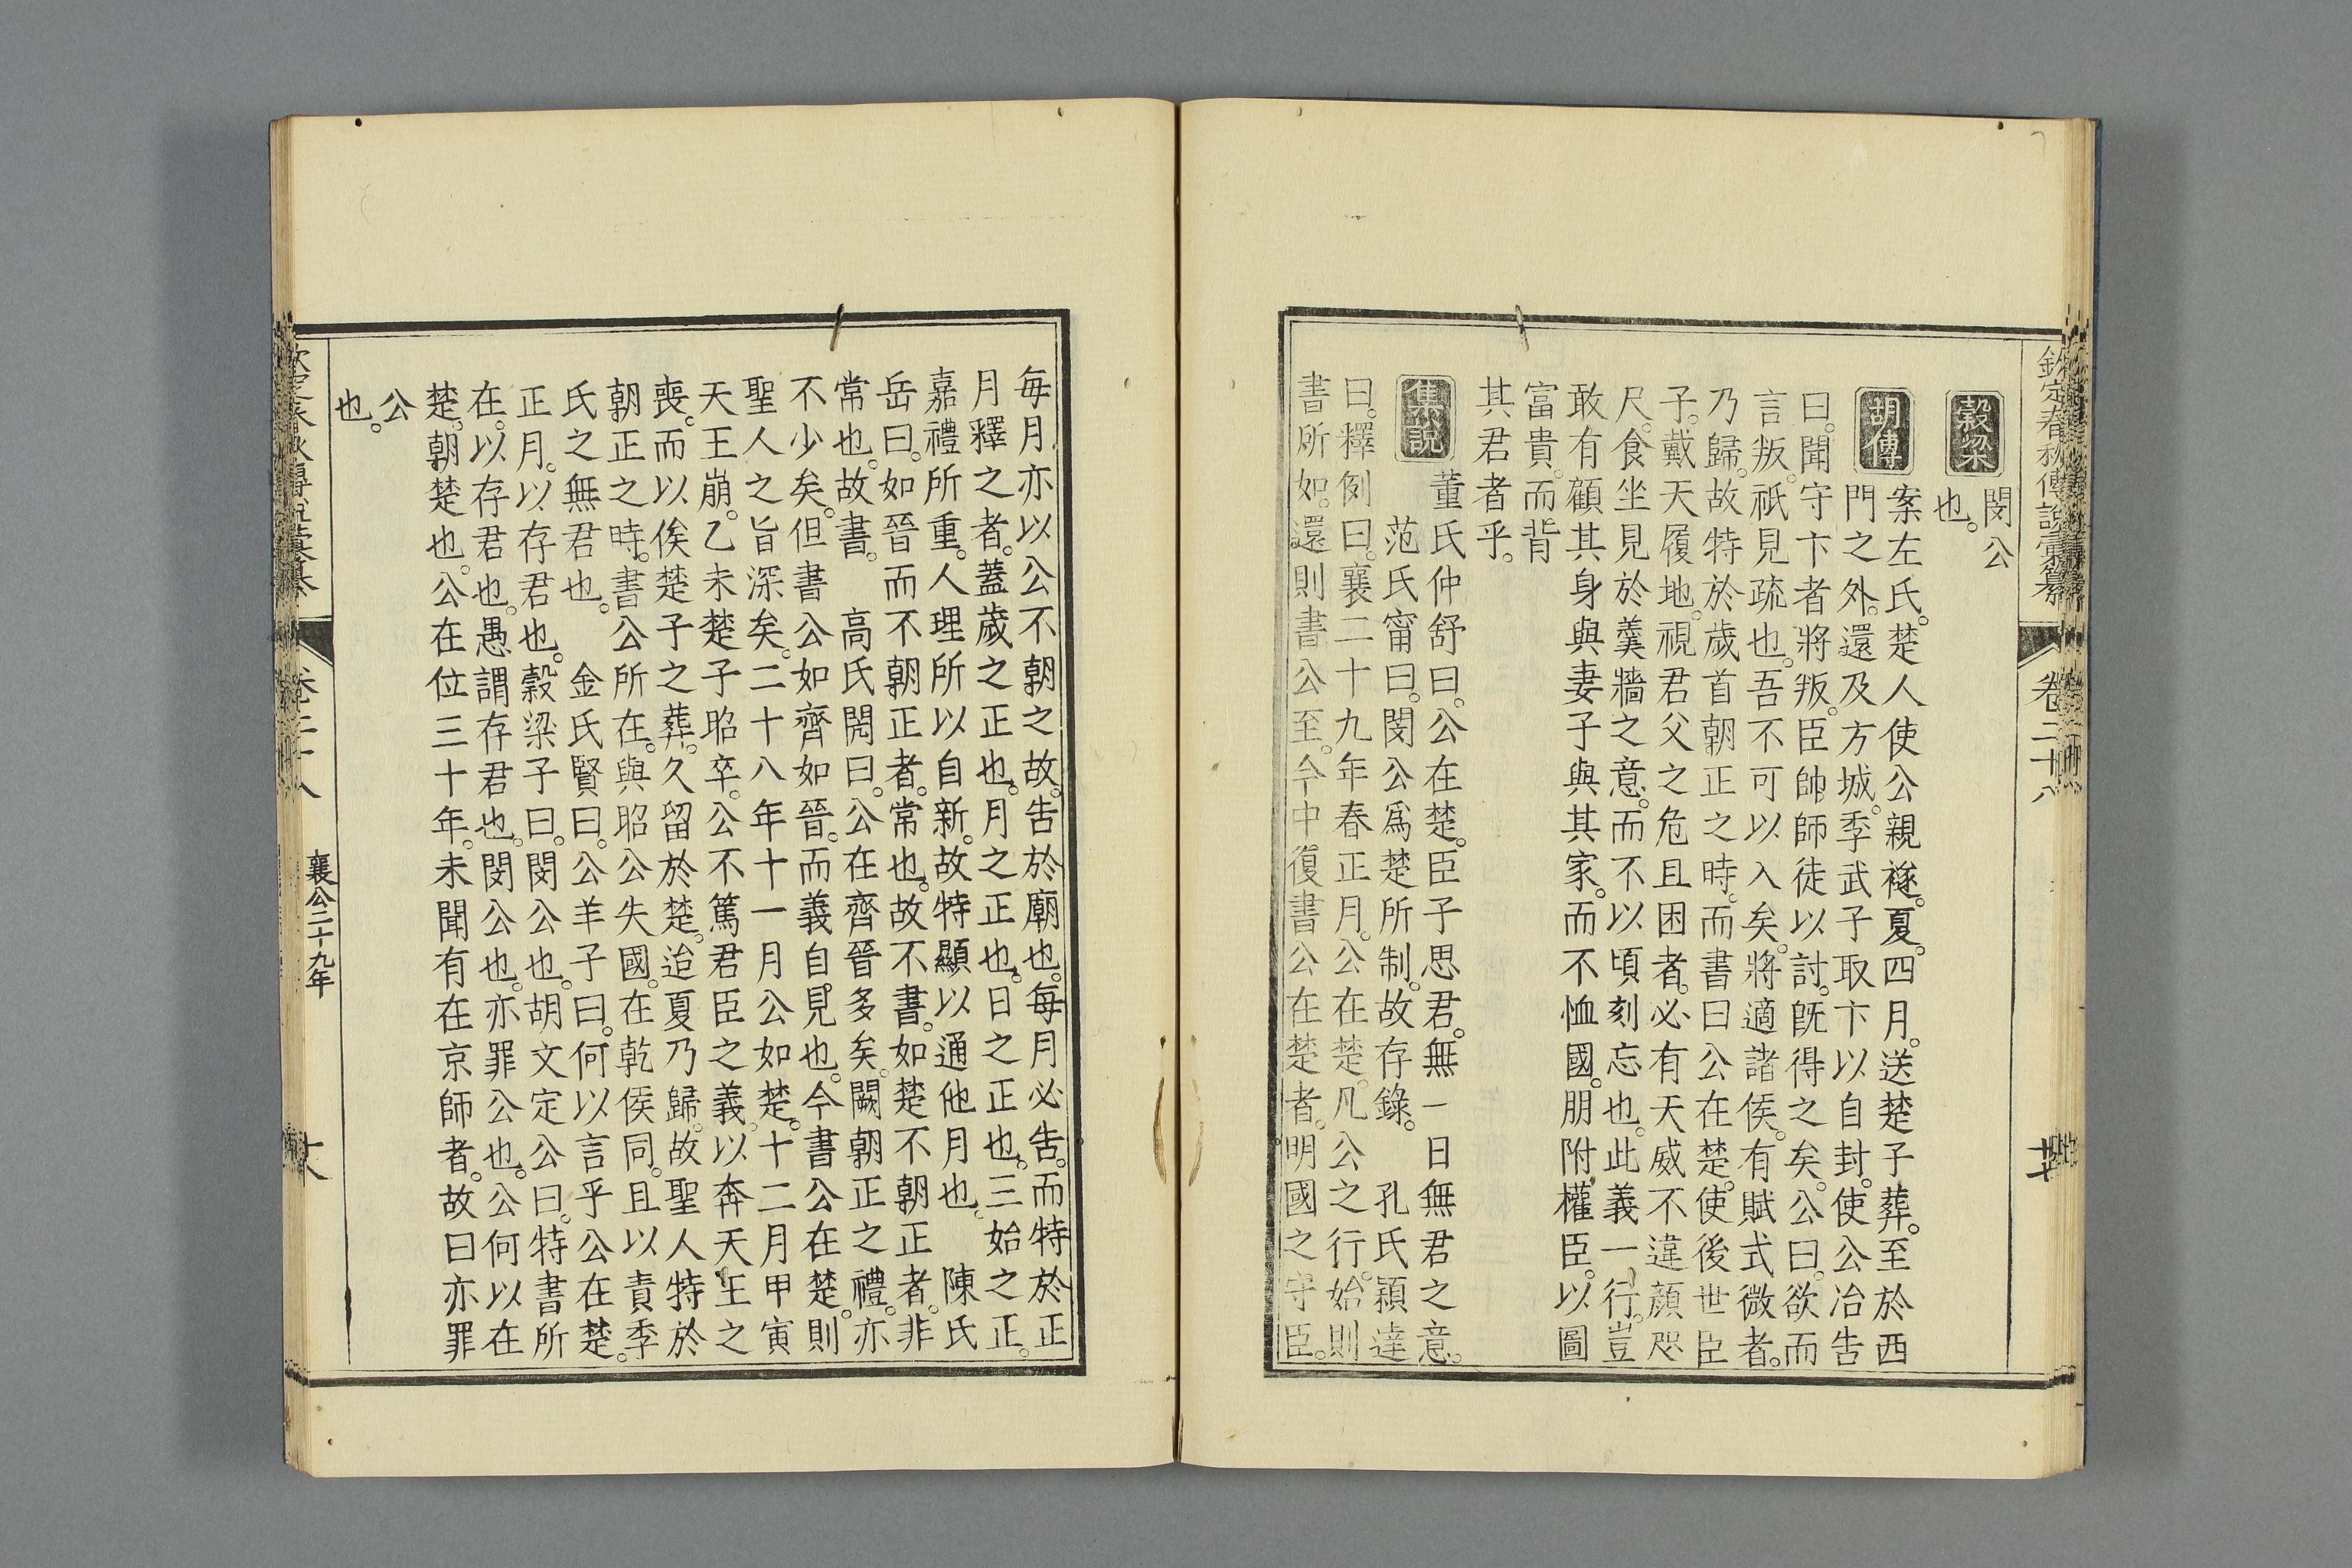 欽定春秋傳說彙纂
卷二十八
穀梁
閔公
也。
胡傳
案左氏。楚人使公親襚。夏。四月。送楚子葬。至於西
門之外。還及方城。季武子取卞以自封。使公冶告
曰。聞守卞者將叛。臣帥師徒以討。旣得之矣。公曰。欲而
言叛。祇見疏也。吾不可以入矣。將適諸侯。有賦式微者。
乃歸。故特於歲首朝正之時。而書曰公在楚。使後世臣
子。戴天履地。視君父之危且困者。必有天威不違顏咫
尺。食坐見於羹牆之意。而不以頃刻忘也。此義一行。豈
敢有顧其身與妻子與其家。而不恤國。朋附權臣。以圖
富貴。而背
其君者乎。
集說
董氏仲舒曰。公在楚。臣子思君。無一日無君之意。
范氏甯曰。閔公爲楚所制。故存錄。 孔氏穎達
曰。釋例曰。襄二十九年春正月。公在楚。凡公之行。始則
書所如。還則書公至。今中復書公在楚者。明國之守臣。
每月亦以公不朝之故。告於廟也。每月必告。而特於正
月釋之者。蓋歲之正也。月之正也。日之正也。三始之正。
嘉禮所重。人理所以自新。故特顯以通他月也。 陳氏
岳曰。如晉而不朝正者。常也。故不書。如楚不朝正者。非
常也。故書。 高氏閌曰。公在齊晉多矣。闕朝正之禮。亦
不少矣。但書公如齊如晉。而義自見也。今書公在楚。則
聖人之旨深矣。二十八年十一月公如楚。十二月甲寅
天王崩。乙未楚子昭卒。公不篤君臣之義。以奔天王之
喪。而以俟楚子之葬。久留於楚。迨夏乃歸。故聖人特於
朝正之時。書公所在。與昭公失國。在乾侯同。且以責季
氏之無君也。 金氏賢曰。公羊子曰。何以言乎公在楚。
正月。以存君也。穀梁子曰。閔公也。胡文定公曰。特書所
在。以存君也。愚謂存君也。閔公也。亦罪公也。公何以在
楚。朝楚也。公在位三十年。未聞有在京師者。故曰亦罪
公
也。
卷二十八
襄公二十九年